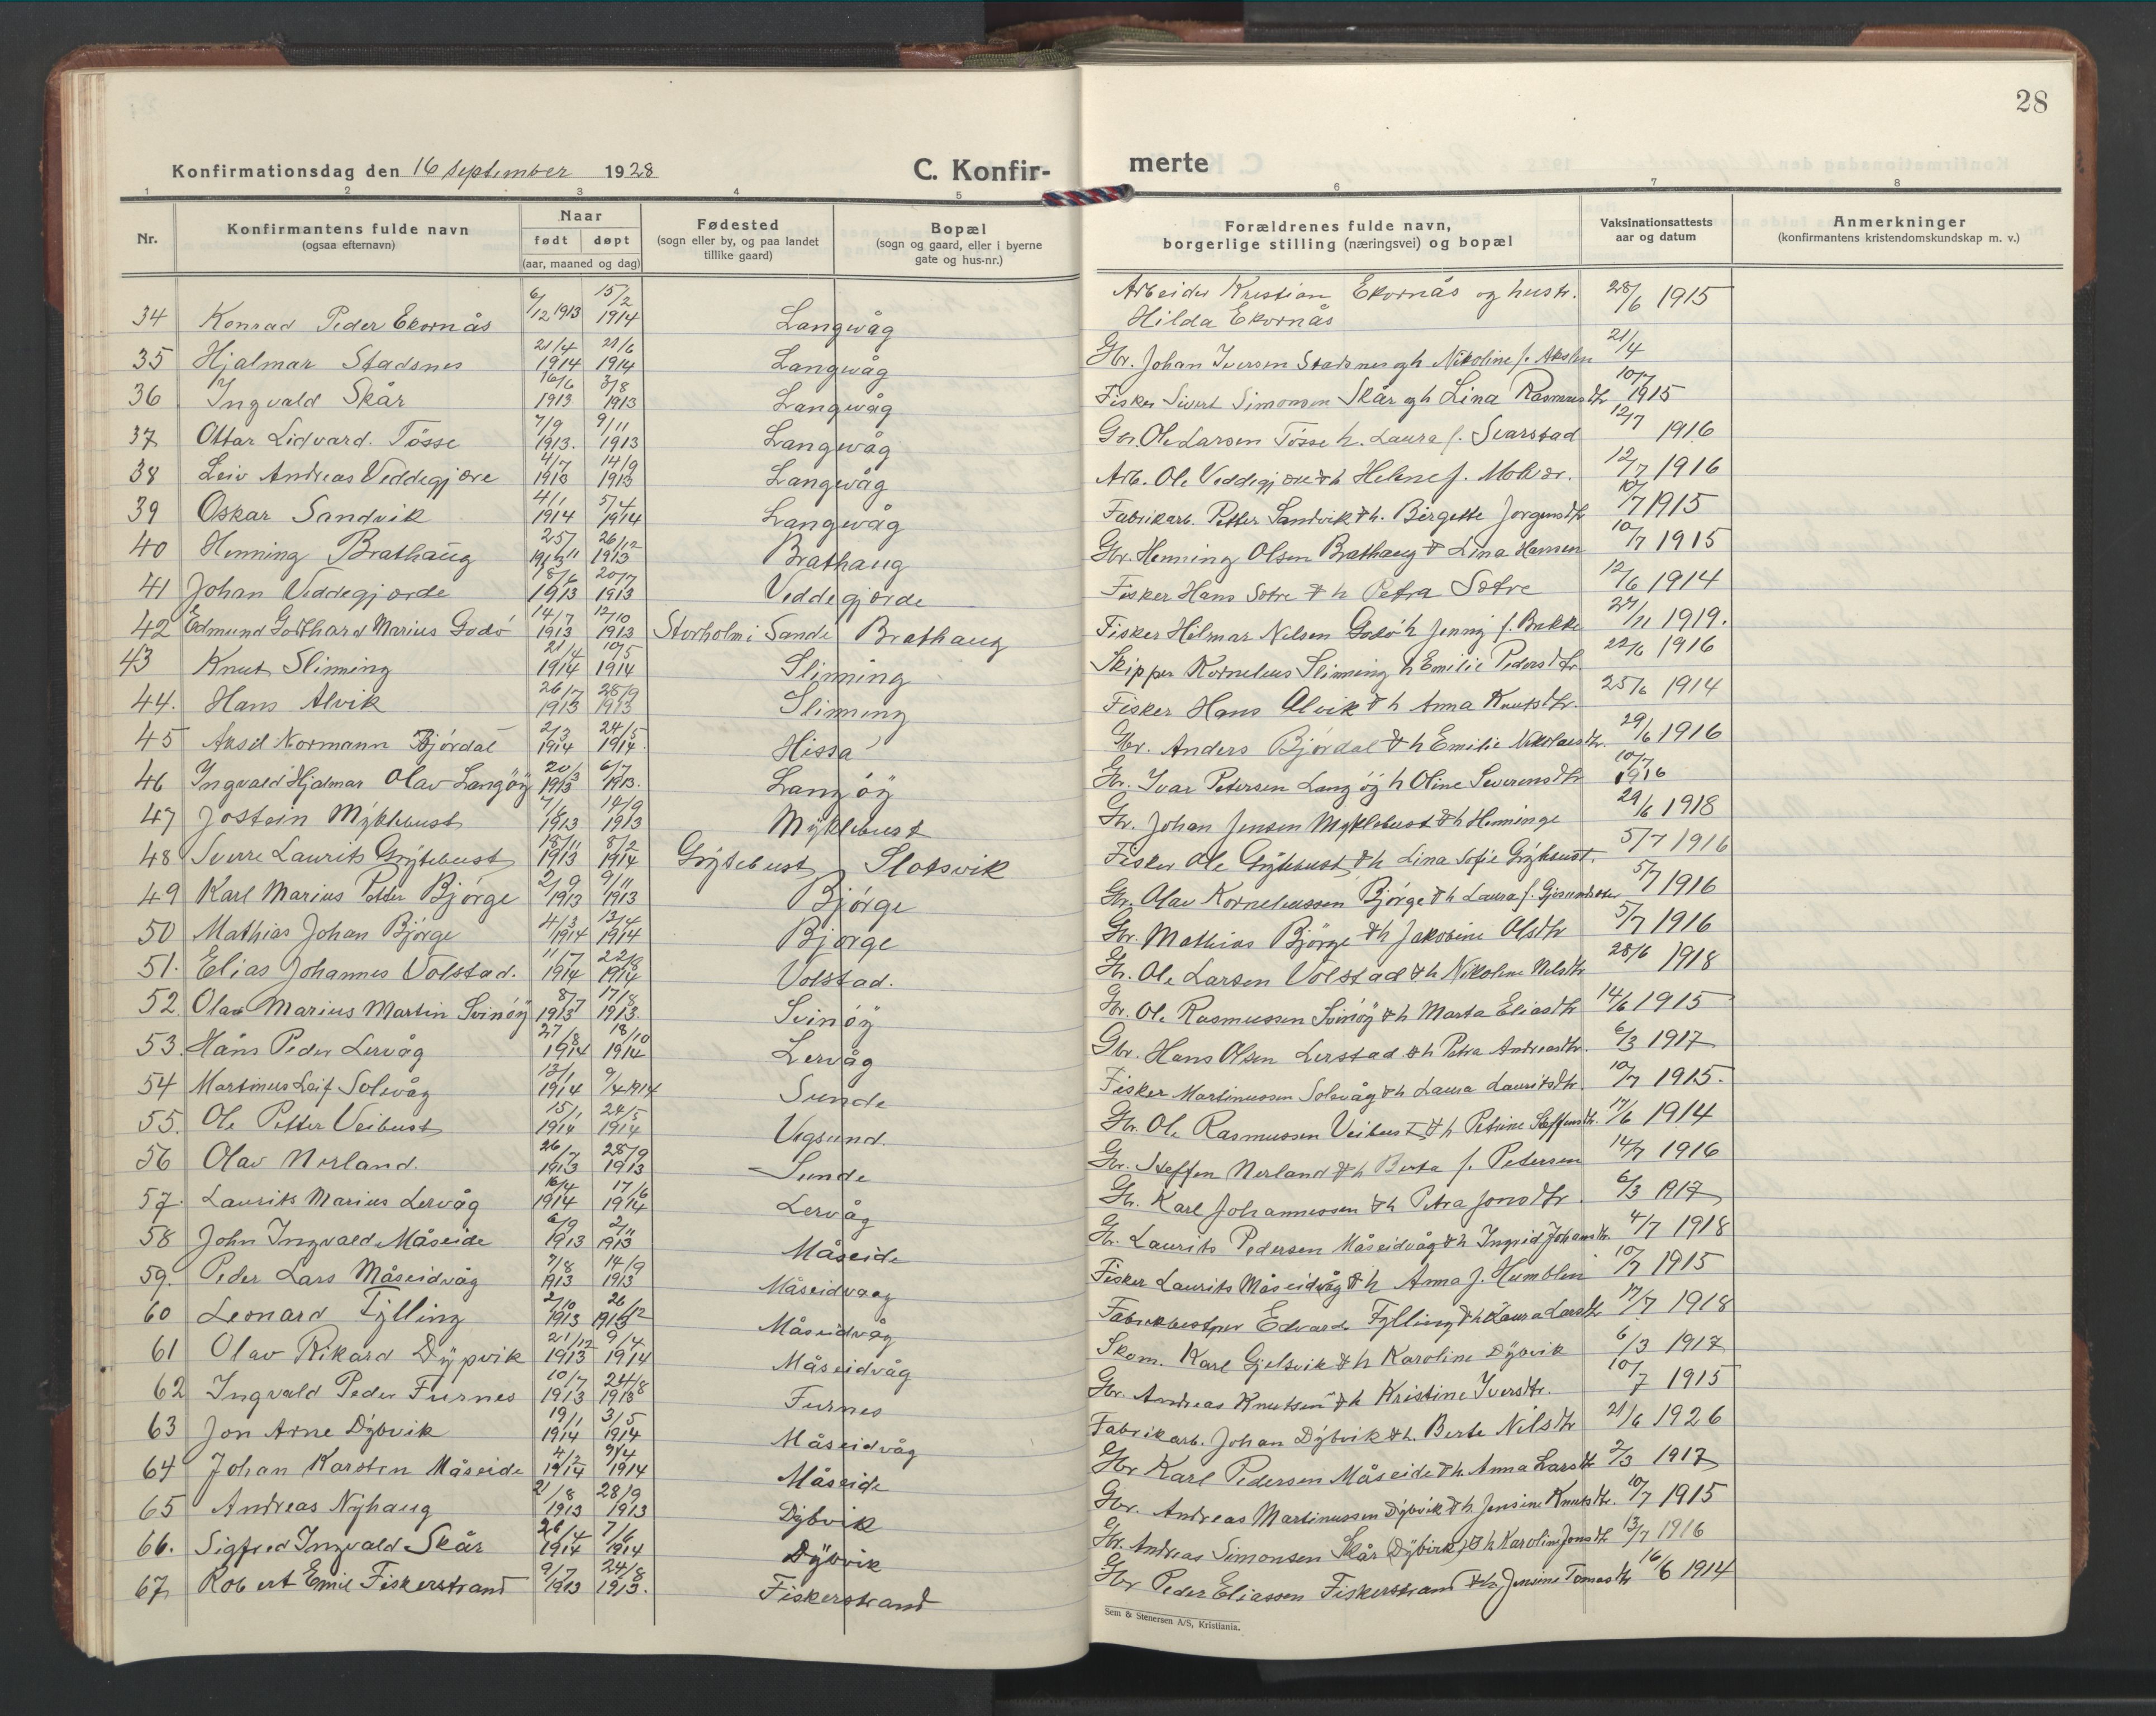 28
Konfirmationsdag den 16 september 1928
C. Konfir-
merte
1 2 3 4 5 6 7 8
Nr.
Konfirmantens fulde navn
(ogsaa efternavn)
Naar
født døpt
(aar, maaned og dag)
Fødested
(sogn eller by, og paa landet
tillike gaard)
Bopæl
(sogn og gaard, eller i byerne
gate og hus-nr.)
Forældrenes fulde navn,
borgerlige stilling (næringsvei) og bopæl
Vaksinationsattests
aar og datum
Anmerkninger
(konfirmantens kristendomskundskap m. v.)
34 Konrad Peder Ekornås 6/12 1913 15/2 1914 Langwåg Arbeider Kristian Ekornås og hustr. Hilda Ekornås 28/6 1915
35 Hjalmar Stadsnes 21/4 1914 21/6 1914 Langwåg Gbr. Johan Iversen Stadsnes og h Nikoline f. Akslen 21/4
36 Ingvald Skår 16/6 1913 3/8 1913 Langwåg Fisker Sivert Simonsen Skår og h Lina Rasmusdtr 10/7 1915
37 Ottar Lidvard. Tösse 7/9 1913. 9/11 1913 Langwåg Gbr. Ole Larsen Tösse h. Laura f. Svarstad 12/7 1916
38 Leiv Andreas Veddegjære 4/7 1913 14/9 1913 Langwåg Arb. Ole Veddegjære & h Helene f. 12/7 1916
39 Oskar Sandvik 4/1 1914 5/4 1914 Langwåg Fabrikarb. Petter Sandvik & h. Bergette Jorgensdtr 10/7 1915
40 Henning Brathaug 25/11 1913 26/12 1913 Brathaug Gbr. Henning Olsen Brathaug & Lina Hansen 10/7 1915
41 Johan Veddegjorde 18/6 1913 20/7 1913 Veddegjorde Fisker Hans Sotre & h Petra Sotre 12/6 1914
42 Edmund Godthard Marius Godö 14/7 1913 12/10 1913 Storholm i Sande Brathaug Fisker Hilmar Nelsen Godö h Jenny f. Bakke 27/11 1919.
43 Knut Slinning 21/4 1914 10/5 1914 Slinning Skipper Kornelius Slinning h Emilie Pedersdtr 22/6 1916
44. Hans Alvik 26/7 1913 28/9 1913 Slinning Fisker Hans Alvik & h Anna Knutsdtr. 25/6 1914
45 Aksel Normann Bjórdal 2/3 1914 24/5 1914. Hissa Gbr. Anders Bjórdal & h Emilie Nikolaisdtr. 29/6 1916
46 Ingvald Hjalmar Olav Langöÿ 20/3 1913 6/7 1913. Langöÿ Gbr. Ivar Petersen Langöÿ h Oline Severensdtr 10/7 1916
47 Jostein Myklebust 7/8 1913 14/9 1913 Myklebust Gbr. Johan Jensen Myklebust & h Henninge 29/6 1918
48 Sverre Laurits Grÿtebust 18/11 1913 8/2 1914 Grÿtebust Slotsvik Fisker Ole Grÿtebust & h Lina Sofie Grÿtebust. 5/7 1916
49 Karl Marius Petter Bjórge 2/9 1913 9/11 1913 Bjórge Gbr. Olav Korneliussen Bjórge & h Laura f. 5/7 1916
50 Mathias Johan Björge 4/3 1914 13/4 1914 Bjorge Gbr. Mathias Björge & h Jakobine Olsdtr 5/7 1916
51. Elias Johannes Volstad. 11/7 1914 22/8 1914 Volstad. Gbr. Ole Larsen Volstad & h Nikoline Nilsdtr 28/6 1918
52 Olav Marius Martin Svinöÿ 8/7 1913 17/8 1913. Svinöÿ Gbr. Ole Rasmussen Svinöÿ & h Marta Eliasdtr 14/6 1915
53. Hans Peder Lervåg 27/8 1914 18/10 1914 Lervåg Gbr. Hans Olsen Lerstad & h Petra Andreasdtr. 6/3 1917
54 Martinus Leif Solevåg 13/1 1914 9/4 1914 Sunde Fisker Martinussen Solevåg & h Laura Lauritsdtr. 10/7 1915.
55. Ole Petter Veibust 15/1 1914 24/5 1914 Vegsund. Gbr. Ole Rasmussen Veibust & h Petrine Steffensdtr. 17/6 1914
56 Olav Nerland. 26/7 1913 28/9 1913 Sunde Gbr. Steffen Nerland & h Berta f. Petersen 14/7 1916
57. Laurits Marius Lervåg 16/4 1914 17/6 1914 Lervåg Gbr. Karl Johannessen & h Petra Jonsdtr. 6/3 1917
58 John Ingvald Måseide 6/9 1913 2/11 1913 Måseide Gbr. Laurits Pedersen Måseidvåg & h Ingrid Johansdtr. 4/7 1918
59. Peder Lars Måseidvåg 7/8 1913 14/9 1913 Måseidvaag Fisker Laurits Måseidvåg & h Anna f. Humblen 10/7 1915
60 Leonard Fÿlling 2/10 1913 26/12 1913 Måseidvåg Fabrikbestyrer Edvard Fÿlling & h Laura Larsdtr 17/7 1918
61 Olav Rikard Dÿpvik 21/12 1913 9/4 1914 Måseidvåg Skom. Karl Gjelsvik & h Karoline Dÿbvik 6/3 1917
62 Ingvald Peder Furnes 10/7 1913 24/8 1913 Furnes Gbr. Andreas Knutsen & h Kristine Iversdtr. 10/7 1915
63 Jon Arne Dÿbvik 19/1 1914 3/5 1914 Måseidvåg Fabrikarb. Johan Dÿbvik & h. Berte Nilsdtr 21/6 1926
64 Johan Karsten Måseide 4/2 1914 9/4 1914 Måseide Gbr Karl Pedersen Måseide & h. Anna Larsdtr 2/3 1917
65 Andreas Nÿhaug 21/8 1913 28/9 1913 Dÿbvik Gbr. Andreas Martinussen Dÿbvik & h. Jensine Knutsdtr. 10/7 1915
66. Sigfred Ingvald Skår 26/4 1914 7/6 1914 Dÿbvik Gbr. Andreas Simonsen Skår (Dÿbvik) & h Karoline Jonsdtr 13/7 1916
67 Robert Emil Fiskerstrand 9/7 1913 24/8 1913. Fiskerstrand Gbr Peder Eliassen Fiskerstrand & h Jensine Tomasdtr 16/6 1914
Sem & Stenersen A/S, Kristiania.